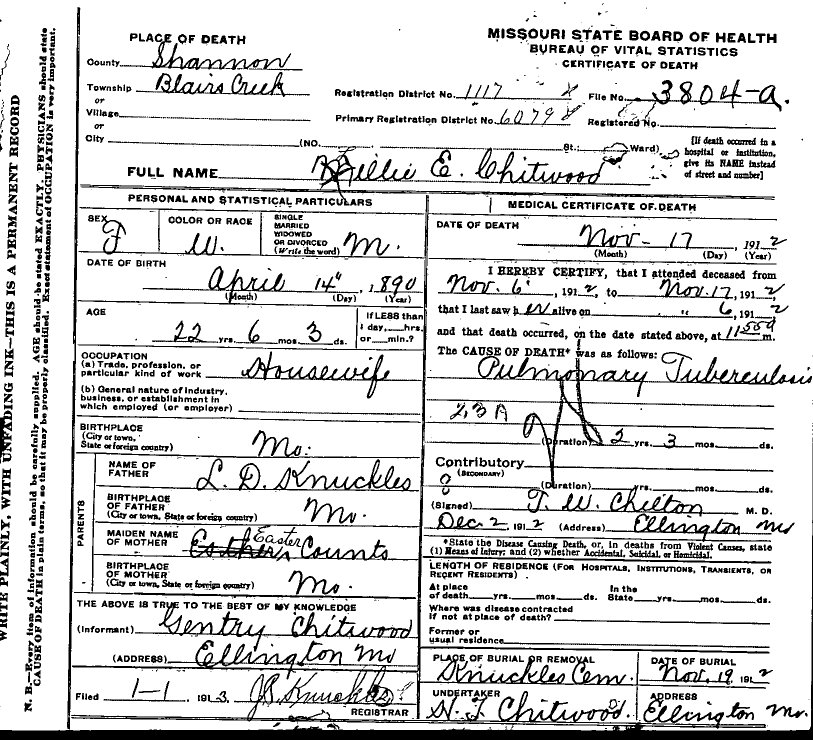 MISSOURI STATE BOARD OF HEALTH
BUREAU OF VITAL STATISTICS
CERTIFICATE OF DEATH
PLACE OF DEATH
County Shannon
Township Blairs Creek
or
Village
or
City (NO. St.; Ward)
Registration District No. 1117 File No. 3804-a.
Primary Registration District No. 6079 Registered No.
[If death occurred in a
hospital or institution,
give its NAME instead
of street and number]
FULL NAME Millie E. Chitwood
PERSONAL AND STATISTICAL PARTICULARS
SEX F
COLOR OR RACE W.
SINGLE
MARRIED
WIDOWED
OR DIVORCED
(Write the word) M.
DATE OF BIRTH
April 14", 1890
(Month) (Day) (Year)
AGE
22 yrs. 6 mos. 3 ds.
If LESS than
1 day, hrs.
or min.?
OCCUPATION
(a) Trade, profession, or
particular kind of work Housewife
(b) General nature of industry,
business, or establishment in
which employed (or employer)
BIRTHPLACE
(City or town,
State or foreign country) Mo.
PARENTS
NAME OF
FATHER L. D. Knuckles
BIRTHPLACE
OF FATHER
(City or town, State or foreign country) Mo.
MAIDEN NAME
OF MOTHER Easter Counts
BIRTHPLACE
OF MOTHER
(City or town, State or foreign country) Mo.
THE ABOVE IS TRUE TO THE BEST OF MY KNOWLEDGE
(Informant) Gentry Chitwood
(ADDRESS) Ellington Mo
Filed 1-1 1913 J.B. Knuckles
REGISTRAR
MEDICAL CERTIFICATE OF DEATH
DATE OF DEATH
Nov - 17, 1912
(Month) (Day) (Year)
I HEREBY CERTIFY, that I attended deceased from
Nov. 6, 1912, to Nov. 17, 1912
that I last saw her alive on " 6, 1912
and that death occurred, on the date stated above, at m.
The CAUSE OF DEATH* was as follows:
Pulmonary Tuberculosis
23A
(Duration) 2 yrs. 3 mos. ds.
Contributory
(SECONDARY)
(Duration) yrs. mos. ds.
(Signed) T. W. Chilton M. D.
Dec. 2, 1912 (Address) Ellington Mo
*State the Disease Causing Death, or, in deaths from Violent Causes, state
(1) Means of Injury; and (2) whether Accidental, Suicidal, or Homicidal.
LENGTH OF RESIDENCE (FOR HOSPITALS, INSTITUTIONS, TRANSIENTS, OR
RECENT RESIDENTS)
At place In the
of death yrs. mos. ds. State yrs. mos. ds.
Where was disease contracted
if not at place of death?
Former or
usual residence
PLACE OF BURIAL OR REMOVAL
Knuckles Cem.
DATE OF BURIAL
Nov. 19, 1912
UNDERTAKER
H. T. Chitwood.
ADDRESS
Ellington Mo.
WRITE PLAINLY, WITH UNFADING INK—THIS IS A PERMANENT RECORD
N. B.—Every item of information should be carefully supplied. AGE should be stated EXACTLY. PHYSICIANS should state
CAUSE OF DEATH in plain terms, so that it may be properly classified. Exact statement of OCCUPATION is very important.